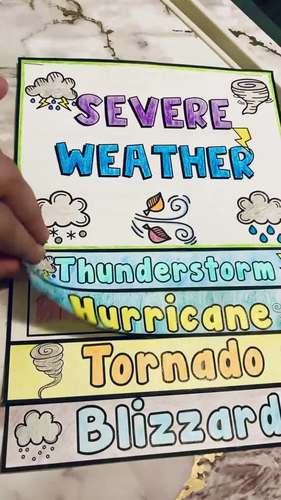 SEVERE
WEATHER
Thunderstorm
Hurricane
Tornado
Blizzard